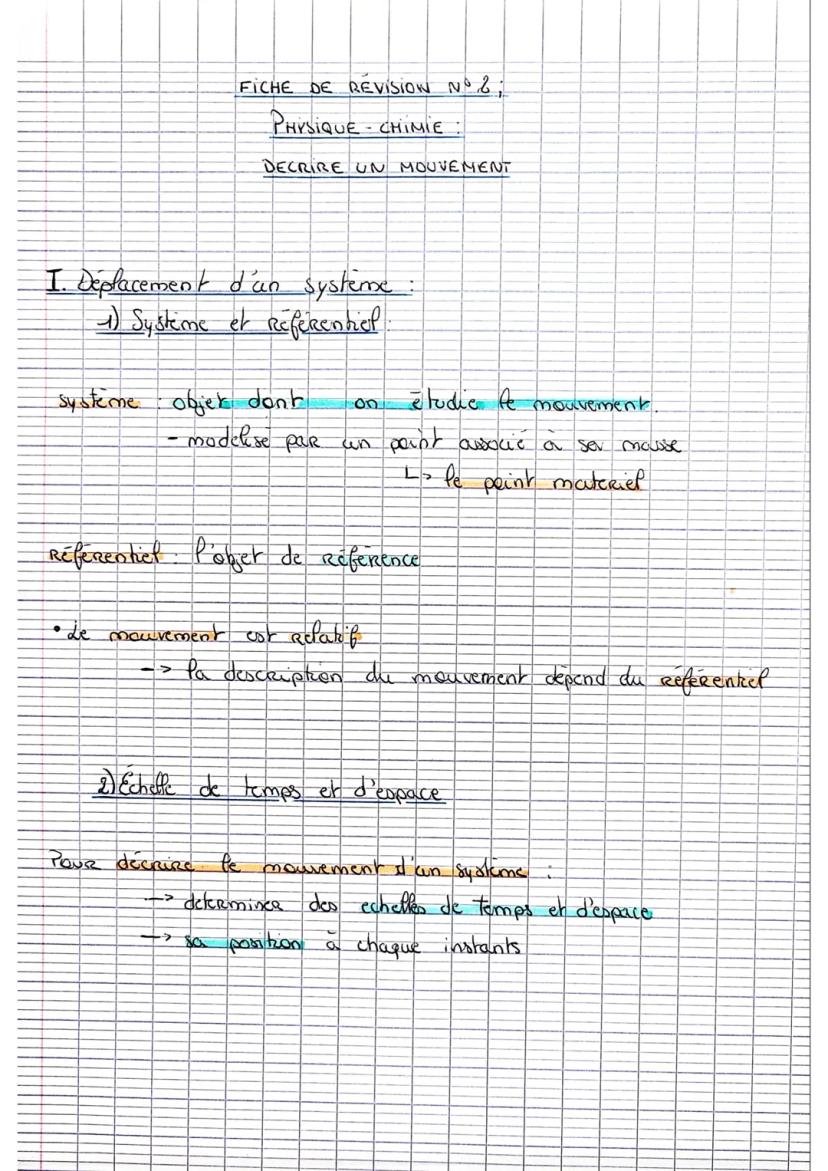 FICHE DE RÉVISION N° 2 ;
PHYSIQUE - CHIMIE :
DECRIRE UN MOUVEMENT
I. Déplacement d'un système :
1) Système et Référentiel.
système : objet dont on étudie le mouvement.
- modélisé par un point associé à sa masse
L> le point materiel
Référentiel : l'objet de référence
• Le mouvement est relatif
--> la description du mouvement dépend du référentiel
2) Échelle de temps et d'espace
Pour décrire le mouvement d'un système :
--> determiner des echelles de temps et d'espace
--> sa position à chaque instants